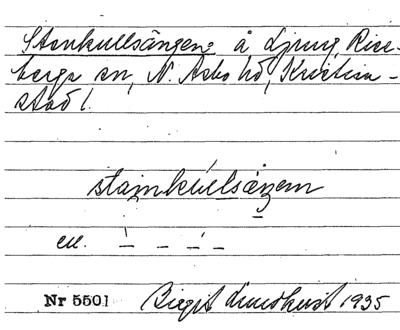 Stenkullsängen å Ljung, Rise-
berga sn, N. Åsbo hd, Kristian-
stad l.
stainkullsäŋen
ell. – – – –
Nr 5501 Birgit Lundkvist 1935